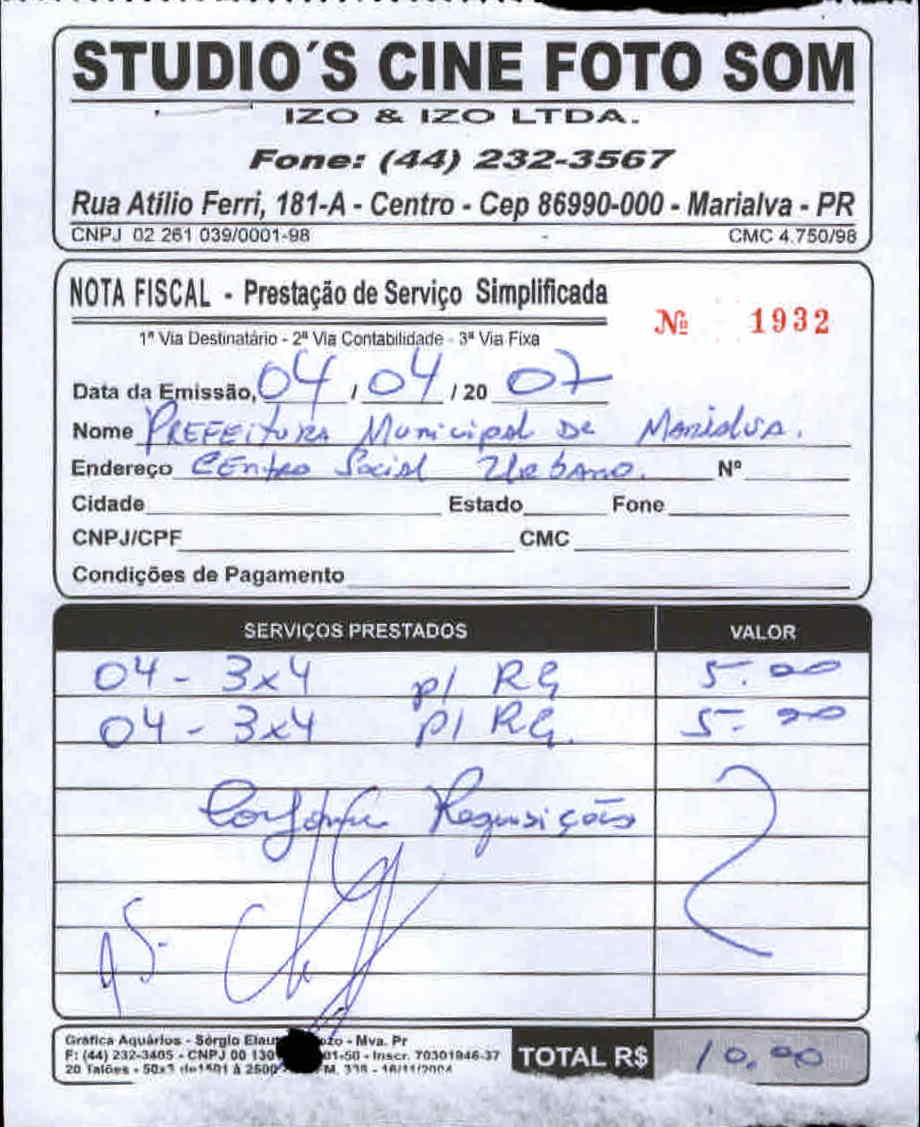 STUDIO´S CINE FOTO SOM
IZO & IZO LTDA.
Fone: (44) 232-3567
Rua Atílio Ferri, 181-A - Centro - Cep 86990-000 - Marialva - PR
CNPJ 02 261 039/0001-98 - CMC 4.750/98
NOTA FISCAL - Prestação de Serviço Simplificada
Nº 1932
1ª Via Destinatário - 2ª Via Contabilidade - 3ª Via Fixa
Data da Emissão, 04 / 04 / 20 07
Nome PREFEITURA Municipal DE MARIALVA.
Endereço CENTRO Social URBANO. Nº
Cidade Estado Fone
CNPJ/CPF CMC
Condições de Pagamento
SERVIÇOS PRESTADOS VALOR
04 - 3x4 p/ RG 5.00
04 - 3x4 p/ RG. 5.00
Conforme Requisições
Gráfica Aquários - Sérgio - Mva. Pr
F: (44) 232-3405 - CNPJ 00 130 01-50 - Inscr. 70301946-37
20 Talões - 50x3 de 1501 à 2500 - 16/11/2004
TOTAL R$ 10.00